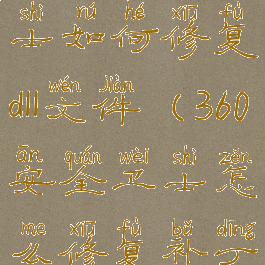 shì rú hé xiū fù
士如何修复
wén jiàn
dll文件(360
ān quán wèi shì zěn
安全卫士怎
me xiū fù bǔ dīng
么修复补丁